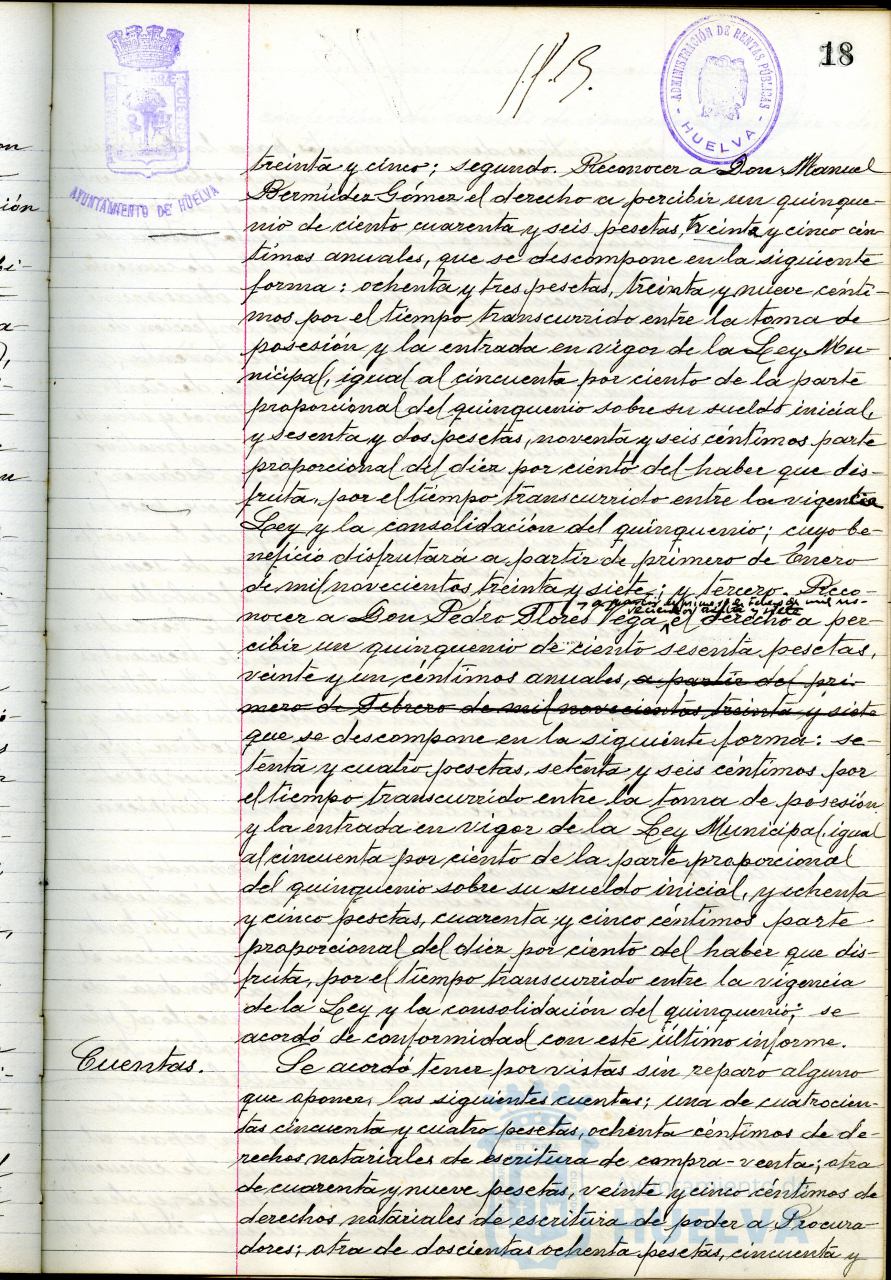 18
AYUNTAMIENTO DE HUELVA
ADMINISTRACIÓN DE RENTAS PÚBLICAS
HUELVA
treinta y cinco; segundo. Reconocer a Don Manuel
Bermúdez Gómez el derecho a percibir un quinque-
nio de ciento cuarenta y seis pesetas, treinta y cinco cén-
timos anuales, que se descompone en la siguiente
forma: ochenta y tres pesetas, treinta y nueve cénti-
mos por el tiempo transcurrido entre la toma de
posesión y la entrada en vigor de la Ley Mu-
nicipal, igual al cincuenta por ciento de la parte
proporcional del quinquenio sobre su sueldo inicial,
y sesenta y dos pesetas, noventa y seis céntimos parte
proporcional del diez por ciento del haber que dis-
fruta, por el tiempo transcurrido entre la vigencia
Ley y la consolidación del quinquenio; cuyo be-
neficio disfrutará a partir de primero de Enero
de mil novecientos treinta y siete; y tercero. Reco-
y a partir de primero de Febrero de mil no-
vecientos treinta y siete
nocer a Don Pedro Flores Vega, el derecho a per-
cibir un quinquenio de ciento sesenta pesetas,
veinte y un céntimos anuales, a partir del pri-
mero de Febrero de mil novecientos treinta y siete
que se descompone en la siguiente forma: se-
tenta y cuatro pesetas, setenta y seis céntimos por
el tiempo transcurrido entre la toma de posesión
y la entrada en vigor de la Ley Municipal, igual
al cincuenta por ciento de la parte proporcional
del quinquenio sobre su sueldo inicial, y ochenta
y cinco pesetas, cuarenta y cinco céntimos parte
proporcional del diez por ciento del haber que dis-
fruta, por el tiempo transcurrido entre la vigencia
de la Ley y la consolidación del quinquenio; se
acordó de conformidad con este último informe.
Cuentas.
Se acordó tener por vistas sin reparo alguno
que oponer, las siguientes cuentas; una de cuatrocien-
tas cincuenta y cuatro pesetas, ochenta céntimos de de-
rechos notariales de escritura de compra-venta; otra
de cuarenta y nueve pesetas, veinte y cinco céntimos de
derechos notariales de escritura de poder a Procura-
dores; otra de doscientas ochenta pesetas, cincuenta y
Ayuntamiento de
HUELVA